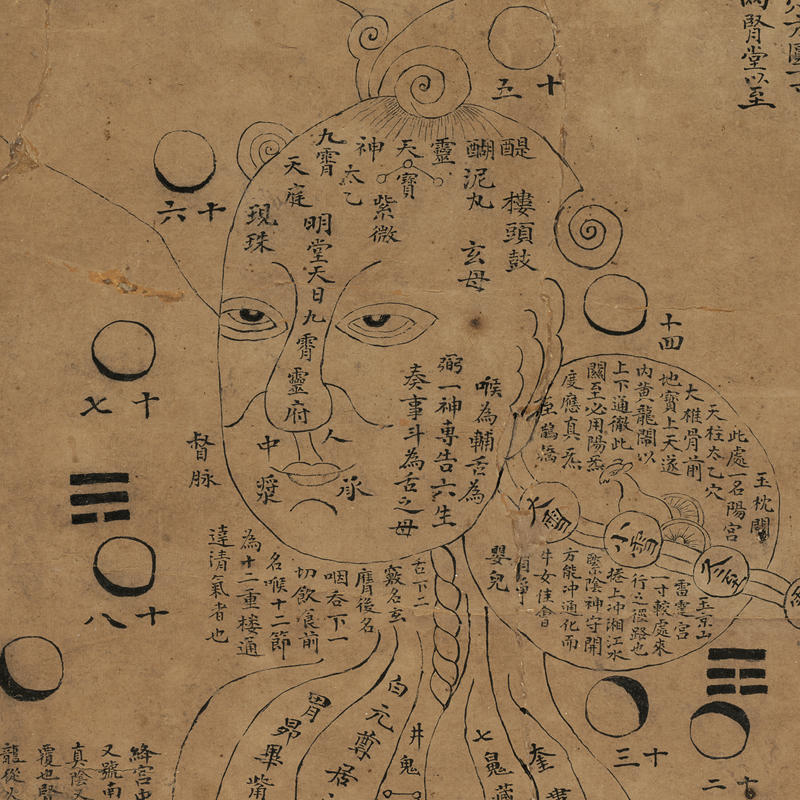 賢堂以至
十五
十六
十四
十七
十八
十三
十二
醍醐
靈
天寶
神
太乙
九霄
天庭
現珠
紫微
泥丸
玄母
樓頭鼓
明堂天日九霄靈府
喉為輔言為
弼一神專告六生
奏事斗為舌之母
人
中
承
漿
督脉
玉枕關
此處一名陽宮
天柱太乙穴
大椎骨前
地寶上天遂
內黃龍關以
上下通徹此
關至必用陽炁
度應真炁
鵲橋
大雪
小雪
玉京山
雷霆宮
一寸較處來
行之徑路也
捲上冲湘江水
繫陰神守開
方能冲通化而
牛女佳會
嬰兒
舌下二
竅名玄
膺後名
咽吞下一
切飲食前
名喉十二節
為十二重樓通
達清氣者也
胃昴畢觜
白元尊居
井鬼
七
奎
絳宮
又號南
真陰又
覆也腎
龍從火